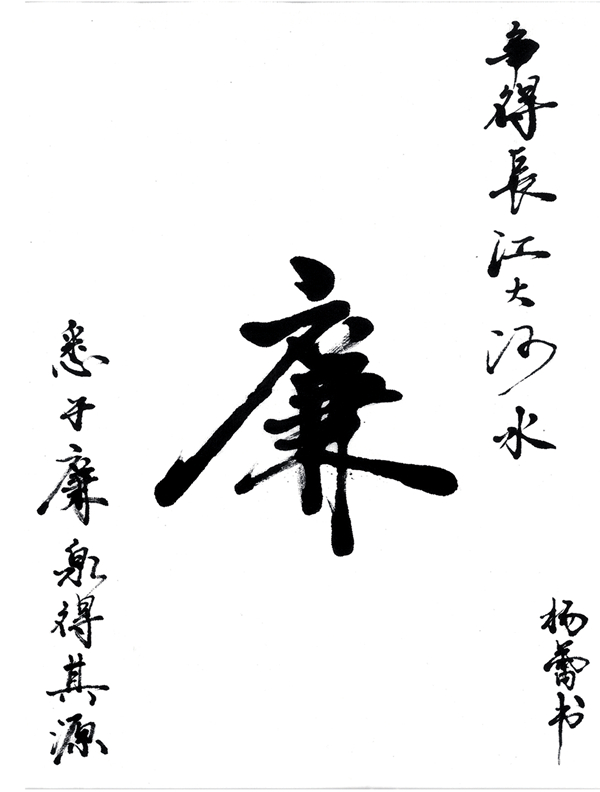 得長江大河水
廉
悉于廉泉得其源
杨蕾书